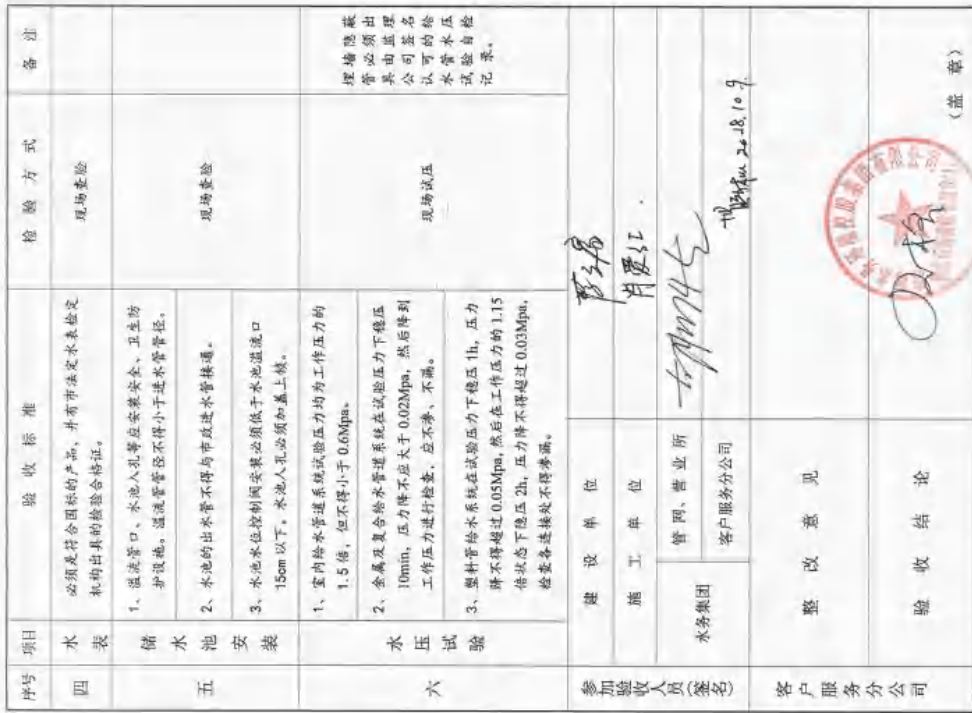 序号 项目 验收标准 检验方式 备注
四 水表 必须是符合国标的产品，并有市法定水表检定
机构出具的检验合格证。 现场查验
五 储水池安装 1、溢流管口、水池人孔等应安装安全、卫生防
护设施。溢流管管径不得小于进水管管径。
2、水池的出水管不得与市政进水管接通。 现场查验
3、水池水位控制阀安装必须低于水池溢流口
15cm以下。水池人孔必须加盖上锁。
六 水压试验 1、室内给水管道系统试验压力均为工作压力的
1.5倍，但不得小于0.6Mpa。
2、金属及复合给水管道系统在试验压力下稳压
10min，压力降不应大于0.02Mpa，然后降到
工作压力进行检查，应不渗、不漏。 现场试压
3、塑料管给水系统在试验压力下稳压1h，压力
降不得超过0.05Mpa，然后在工作压力的1.15
倍状态下稳压2h，压力降不得超过0.03Mpa，
检查各连接处不得渗漏。
埋墙隐蔽
管必须出
具由监理
公司签名
认可的给
水管水压
试验自检
记录。
参加验收人员(签名) 建设单位
施工单位
水务集团 管网、营业所
客户服务分公司 2018.10.9
客户服务分公司 整改意见
验收结论
（盖章）